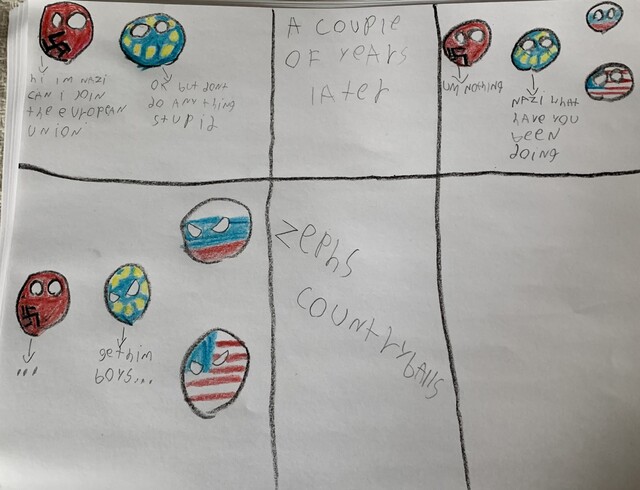 hi im NAZi
CAN i JOiN
the EUrOPEAN
UNiON
OK but dont
do ANy thing
stupid
A COUPlE
OF YEArs
lAtEr
UM NOthiNg
NAZi what
hAVE YOU
bEEN
doing
...
get him
boys...
ZEPhs
COUNtrYbAlls